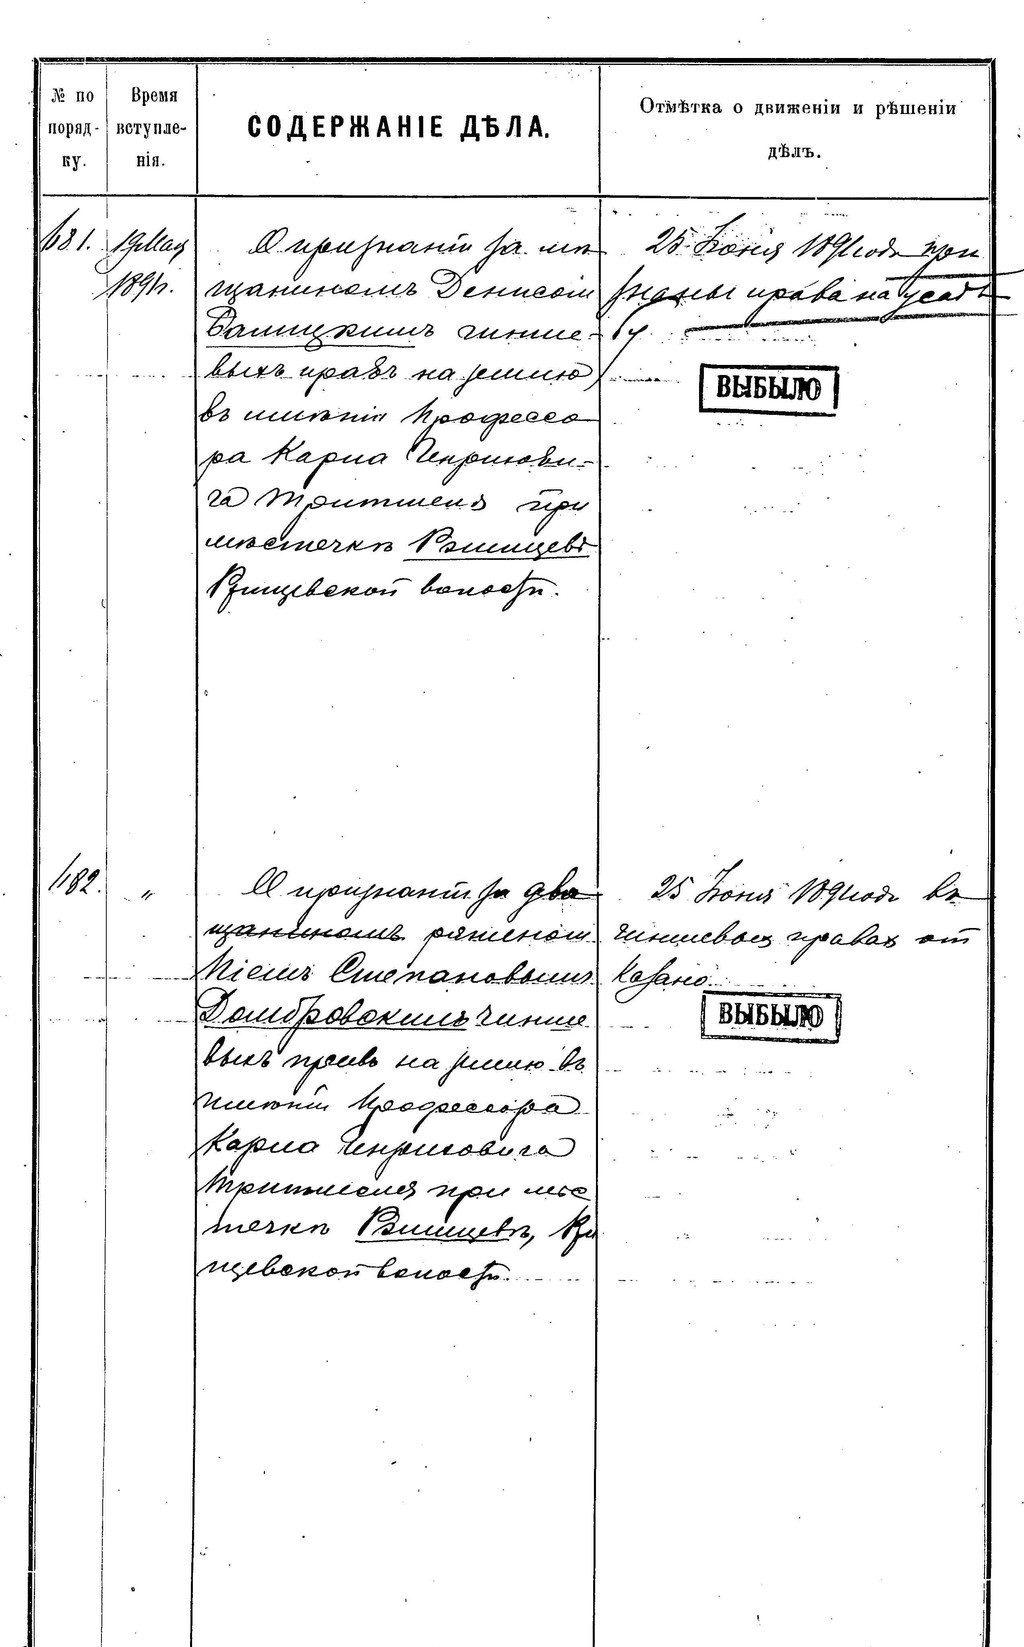 № по порядку.
Время вступле-
нія.
СОДЕРЖАНІЕ ДѢЛА.
Отмѣтка о движеніи и рѣшеніи
дѣлъ.
681. 19 Мая
1891 г.
О признаніи за мѣ
щаниномъ Денисом
чинше-
выхъ правъ на землю
въ имѣніи Профессо
ра Карла Генрихови-
ча Тритшеля при
мѣстечкѣ Ржищевѣ
Ржищевской волости.
25 Іюня 1891 года при
знаны права на усадь
бу
ВЫБЫЛО
682. "
О признаніи за дво
щаниномъ ряниномъ
Степановымъ
Домбровскимъ чинше
выхъ правъ на землю въ
имѣніи Профессора
Карла Генриховича
Тритшеля при мѣс
течкѣ Ржищевѣ, Ржи
щевской волости.
25 Іюня 1891 года въ
чиншевыхъ правахъ от
казано.
ВЫБЫЛО